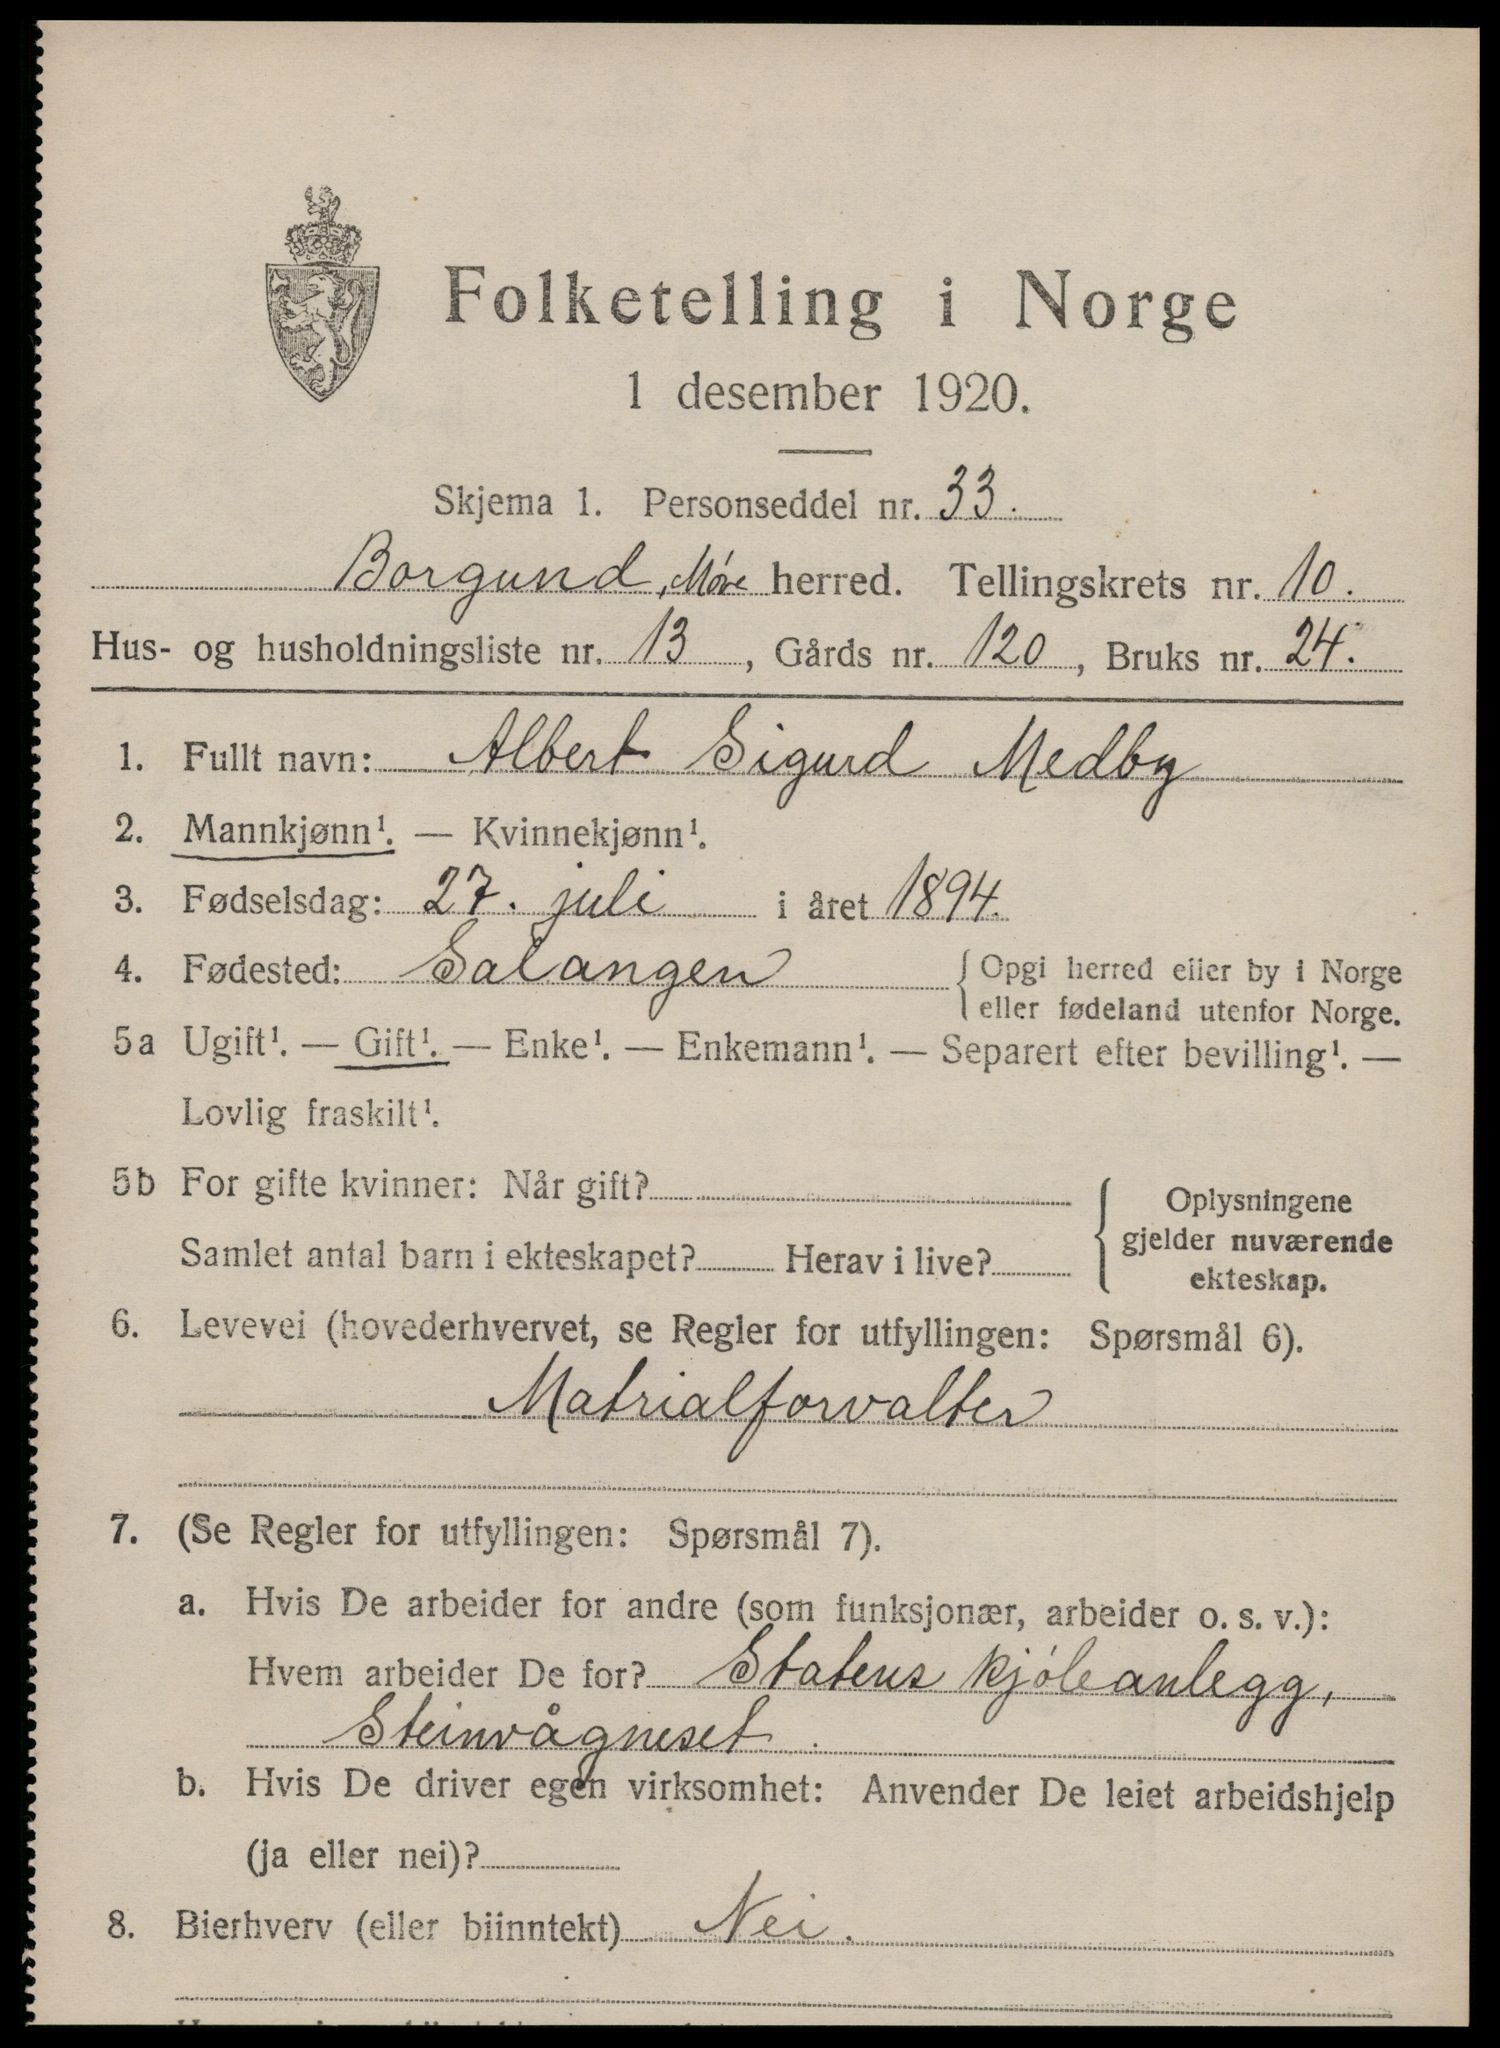 Folketelling i Norge
1 desember 1920.
Skjema 1. Personseddel nr. 33.
Borgund, Møre herred. Tellingskrets nr. 10.
Hus- og husholdningsliste nr. 13, Gårds nr. 120, Bruks nr. 24.
1. Fullt navn: Albert Sigurd Medby
2. Mannkjønn¹. — Kvinnekjønn¹.
3. Fødselsdag: 27. juli i året 1894.
4. Fødested: Salangen { Opgi herred eller by i Norge
eller fødeland utenfor Norge.
5a Ugift¹. — Gift¹. — Enke¹. — Enkemann¹. — Separert efter bevilling¹. —
Lovlig fraskilt¹.
5b For gifte kvinner: Når gift?
Samlet antal barn i ekteskapet? Herav i live?
Oplysningene
gjelder nuværende
ekteskap.
6. Levevei (hovederhvervet, se Regler for utfyllingen: Spørsmål 6).
Matrialforvalter
7. (Se Regler for utfyllingen: Spørsmål 7).
a. Hvis De arbeider for andre (som funksjonær, arbeider o. s. v.):
Hvem arbeider De for? Statens kjóleanlegg,
Steinvågneset.
b. Hvis De driver egen virksomhet: Anvender De leiet arbeidshjelp
(ja eller nei)?
8. Bierhverv (eller biinntekt) Nei.